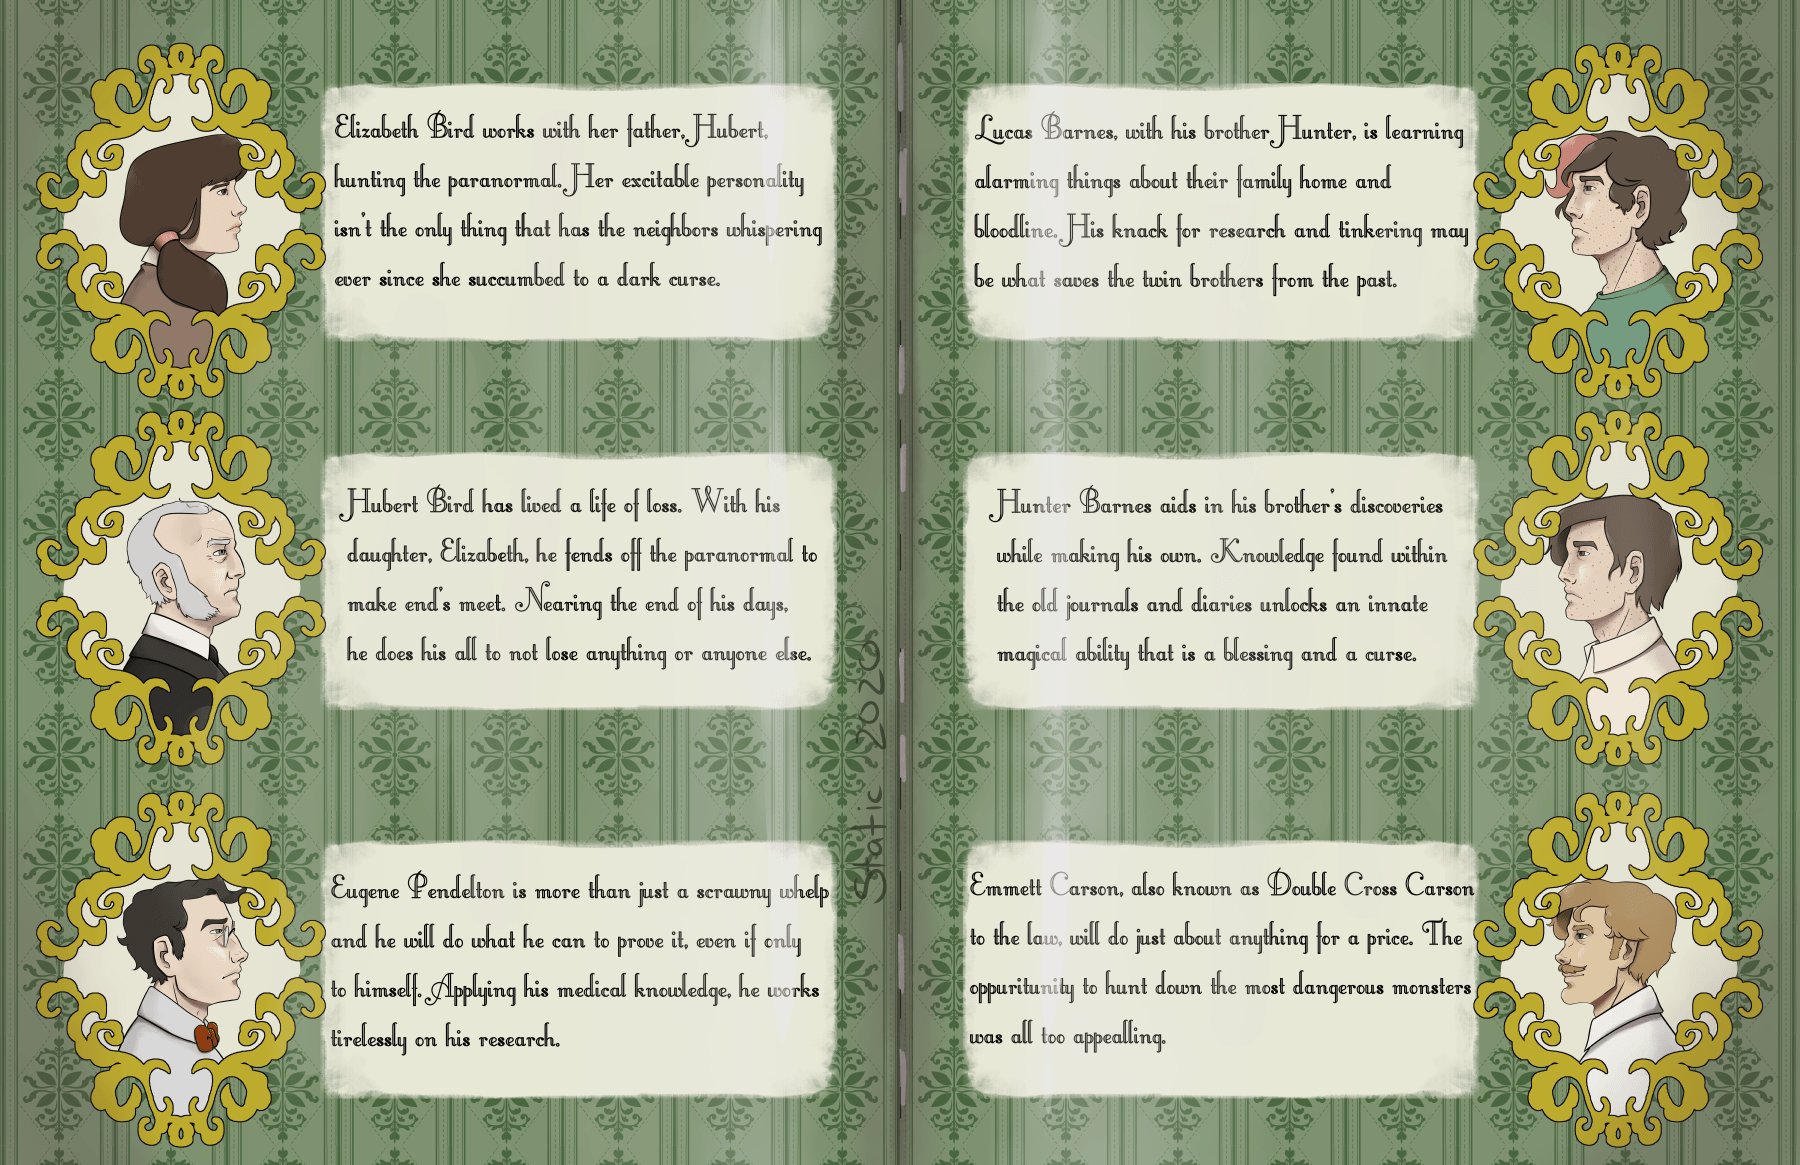 Elizabeth Bird works with her father, Hubert,
hunting the paranormal. Her excitable personality
isn't the only thing that has the neighbors whispering
ever since she succumbed to a dark curse.
Hubert Bird has lived a life of loss. With his
daughter, Elizabeth, he fends off the paranormal to
make end's meet. Nearing the end of his days,
he does his all to not lose anything or anyone else.
Eugene Pendelton is more than just a scrawny whelp
and he will do what he can to prove it, even if only
to himself. Applying his medical knowledge, he works
tirelessly on his research.
Static 2020
Lucas Barnes, with his brother Hunter, is learning
alarming things about their family home and
bloodline. His knack for research and tinkering may
be what saves the twin brothers from the past.
Hunter Barnes aids in his brother's discoveries
while making his own. Knowledge found within
the old journals and diaries unlocks an innate
magical ability that is a blessing and a curse.
Emmett Carson, also known as Double Cross Carson
to the law, will do just about anything for a price. The
oppuritunity to hunt down the most dangerous monsters
was all too appealling.